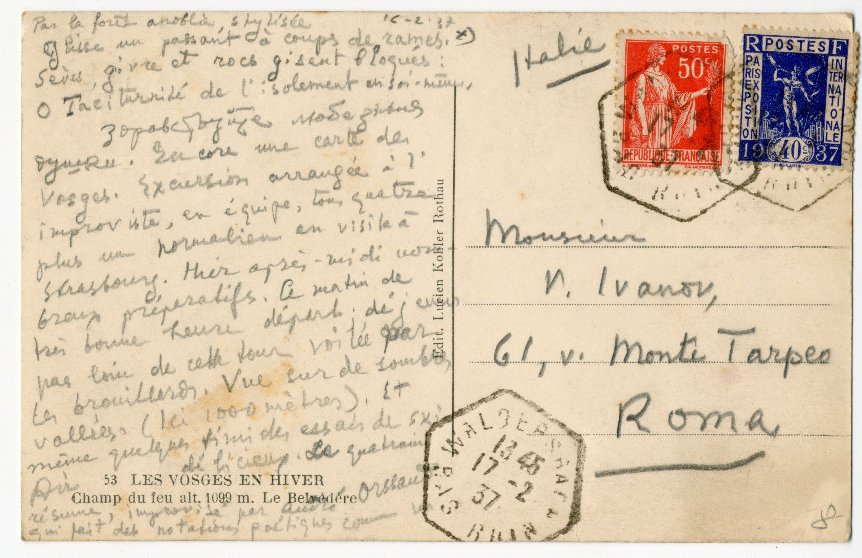 Par la forêt anoblie stylisée
Glisse un passant à coups de rames. x)
Sèves, givre et rocs gisent bloqués:
O Taciturnité de l'isolement en soi-même,
Encore une carte des
Vosges. Excursion arrangée à l'
improviste, en équipe, tous quatre
plus un normalien en visite à
Strasbourg. Hier après-midi
préparatifs. Ce matin de
très bonne heure départ, déjeuner
pas loin de cette tour voilée par
les brouillards. Vue sur de sombres
vallées (Ici 1000 mètres). Et
même quelques timides essais de ski
Air délicieux. Le quatrain
résume, improvisé par
qui fait des notations poétiques comme
53 LES VOSGES EN HIVER
Champ du feu alt. 1099 m. Le Belvédère
Edit. Lucien Kohler Rothau
Italie
POSTES
50c
REPUBLIQUE FRANÇAISE
R POSTES F
PARIS EXPOSITION
INTERNATIONALE
19 40c 37
RHIN
RHIN
Monsieur
V. Ivanov,
61, v. Monte Tarpeo
Roma
WALDERSBACH
13 45
17-2
37
BAS
RHIN